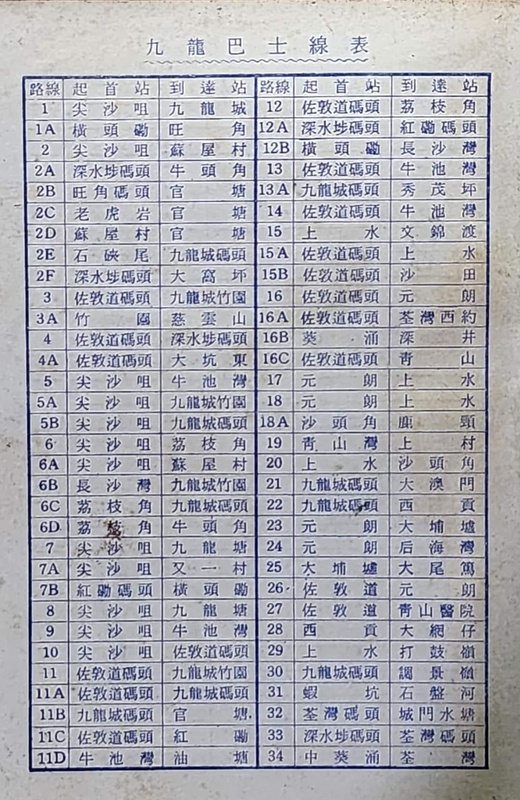 九龍巴士線表
路線 起首站 到達站 路線 起首站 到達站
1 尖沙咀 九龍城 12 佐敦道碼頭 荔枝角
1A 橫頭磡 旺角 12A 深水埗碼頭 紅磡碼頭
2 尖沙咀 蘇屋村 12B 橫頭磡 長沙灣
2A 深水埗碼頭 牛頭角 13 佐敦道碼頭 牛池灣
2B 旺角碼頭 官塘 13A 九龍城碼頭 秀茂坪
2C 老虎岩 官塘 14 佐敦道碼頭 牛池灣
2D 蘇屋村 官塘 15 上水 文錦渡
2E 石硤尾 九龍城碼頭 15A 佐敦道碼頭 上水
2F 深水埗碼頭 大窩坪 15B 佐敦道碼頭 沙田
3 佐敦道碼頭 九龍城竹園 16 佐敦道碼頭 元朗
3A 竹園 慈雲山 16A 佐敦道碼頭 荃灣西約
4 佐敦道碼頭 深水埗碼頭 16B 葵涌 深井
4A 佐敦道碼頭 大坑東 16C 佐敦道碼頭 靑山
5 尖沙咀 牛池灣 17 元朗 上水
5A 尖沙咀 九龍城竹園 18 元朗 上水
5B 尖沙咀 九龍城碼頭 18A 沙頭角 鹿頸
6 尖沙咀 荔枝角 19 靑山灣 上村
6A 尖沙咀 蘇屋村 20 上水 沙頭角
6B 長沙灣 九龍城竹園 21 九龍城碼頭 大澳門
6C 荔枝角 九龍城碼頭 22 九龍城碼頭 西貢
6D 荔枝角 牛頭角 23 元朗 大埔墟
7 尖沙咀 九龍塘 24 元朗 后海灣
7A 尖沙咀 又一村 25 大埔墟 大尾篤
7B 紅磡碼頭 橫頭磡 26 佐敦道 元朗
8 尖沙咀 九龍塘 27 佐敦道 靑山醫院
9 尖沙咀 牛池灣 28 西貢 大網仔
10 尖沙咀 佐敦道碼頭 29 上水 打鼓嶺
11 佐敦道碼頭 九龍城竹園 30 九龍城碼頭 調景嶺
11A 佐敦道碼頭 九龍城碼頭 31 蝦坑 石盤河
11B 九龍城碼頭 官塘 32 荃灣碼頭 城門水塘
11C 佐敦道碼頭 紅磡 33 深水埗碼頭 荃灣碼頭
11D 牛池灣 油塘 34 中葵涌 荃灣